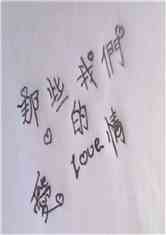 那些我們
的
Love
愛情